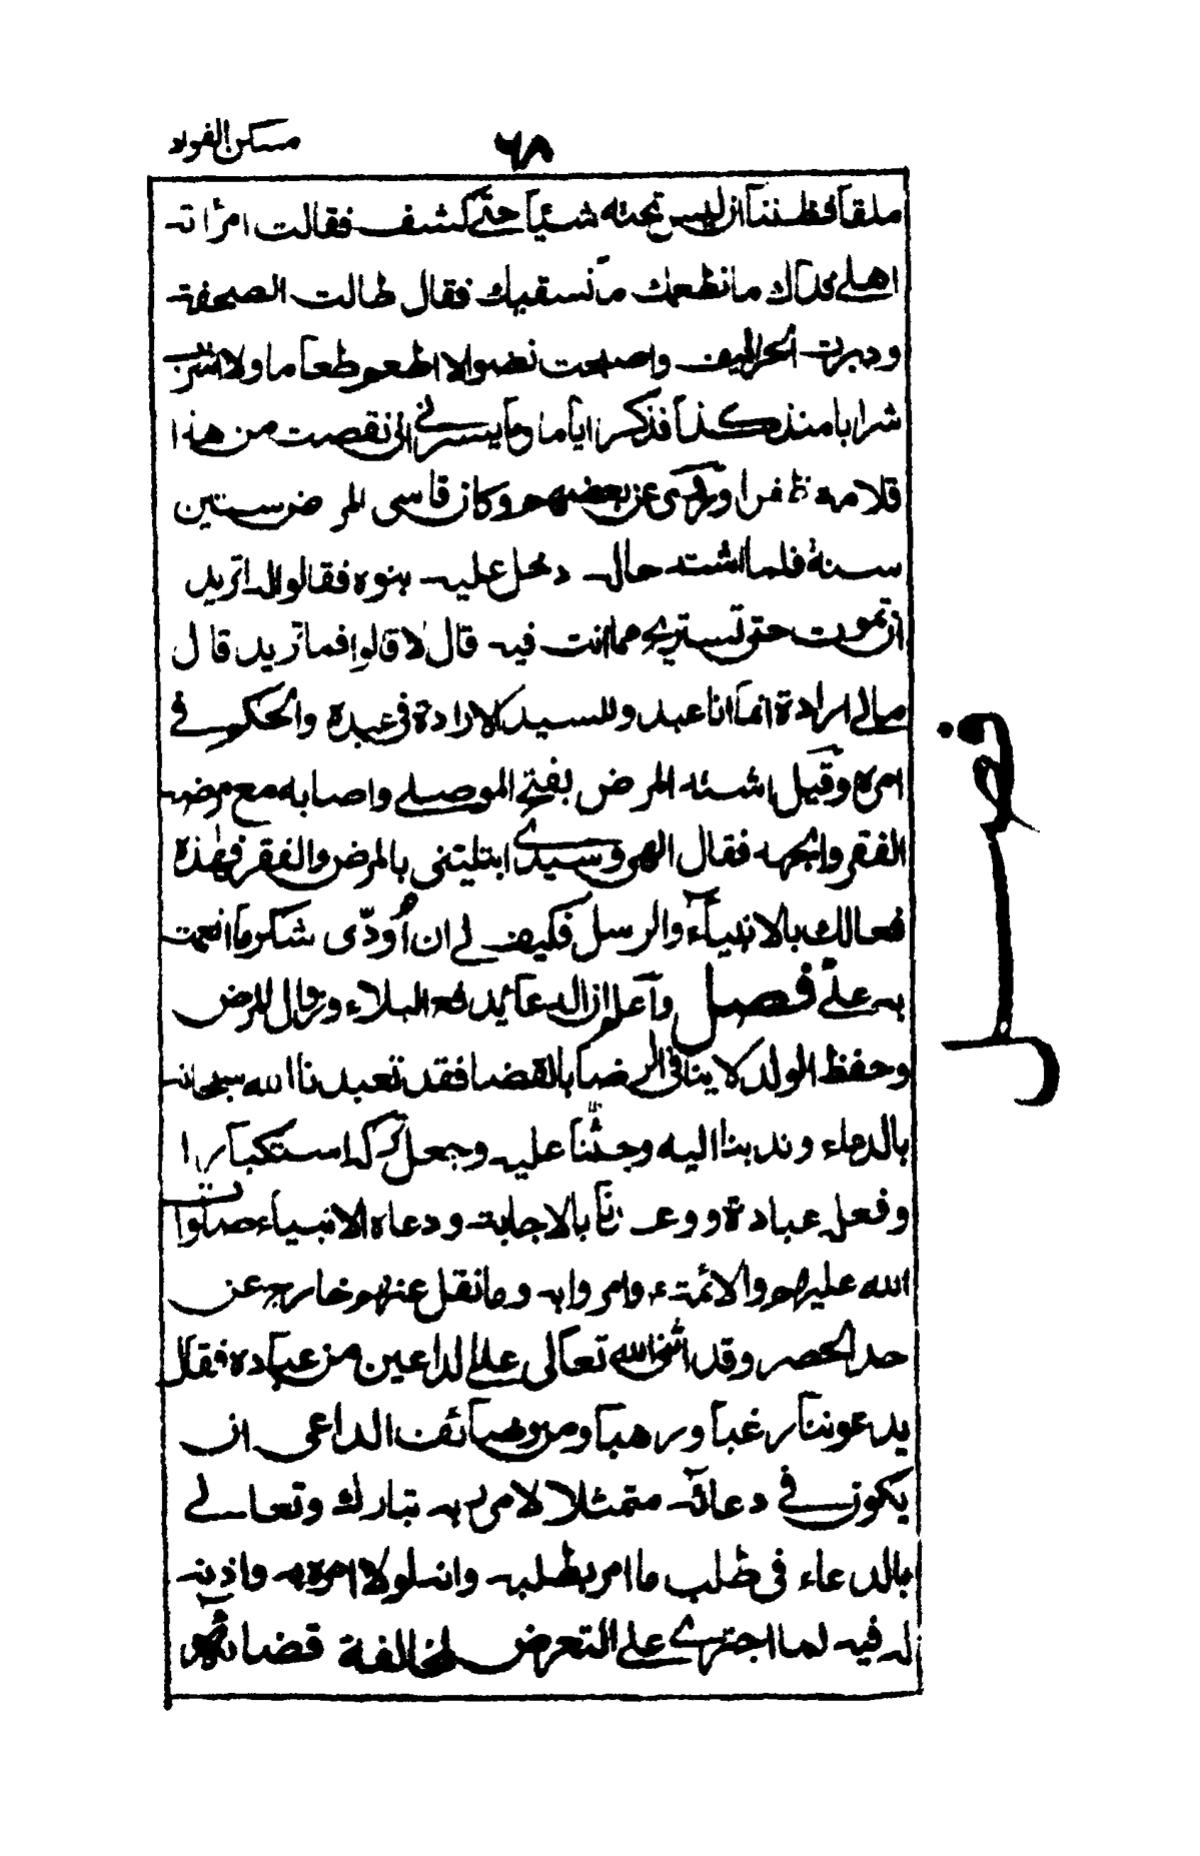 مسكن الفواد
٦٨
ملقاً فظننا ان ليس تحته شيئاً حتى كشف فقالت امراته
اهلي فداك ما نطعمك ما نسقيك فقال طالت الضجعة
ودبرت الحراقيف واصبحت نضوا لا اطعم طعاما ولا اشرب
شرابا منذ كذا فذكر اياما وما يسرني اني نقصت من هذا
قلامة ظفر وروى عن بعضهم وكان قاسى المرض ستين
سنة فلما اشتد حاله دخل عليه بنوه فقالوا له اتريد
ان تموت حتى تستريح مما انت فيه قال لا قالوا فما تريد قال
مالي ارادة انما انا عبد وللسيد الارادة في عبده والحكم في
امره وقيل اشتد المرض بفتح الموصلي واصابه مع مرضه
الفقر والجهد فقال الهي وسيدي ابتليتني بالمرض والفقر فهذه
فعالك بالانبياء والرسل فكيف لي ان اُودّى شكر ما انعمت
به عليّ فصل واعلم ان الدعا يدفع البلاء وزوال المرض
وحفظ الولد لا ينافي الرضا بالقضا فقد تعبدنا الله سبحانه
بالدعاء وندبنا اليه وحثّنا عليه وجعل تركه استكبارا
وفعله عبادة ووعدنا بالاجابة ودعاه الانبياء صلوات
الله عليهم والائمة وامروا به وما نقل عنهم خارج عن
حد الحصر وقد اثنى الله تعالى على الداعين من عباده فقال
يدعوننا رغبا ورهبا ومن وظائف الداعي ان
يكون في دعائه متمثلا لامر ربه تبارك وتعالى
بالدعاء في طلب ما امر بطلبه وانه لولا امره به واذنه
له فيه لما اجترى على التعرض لمخالفة قضائه
فصل